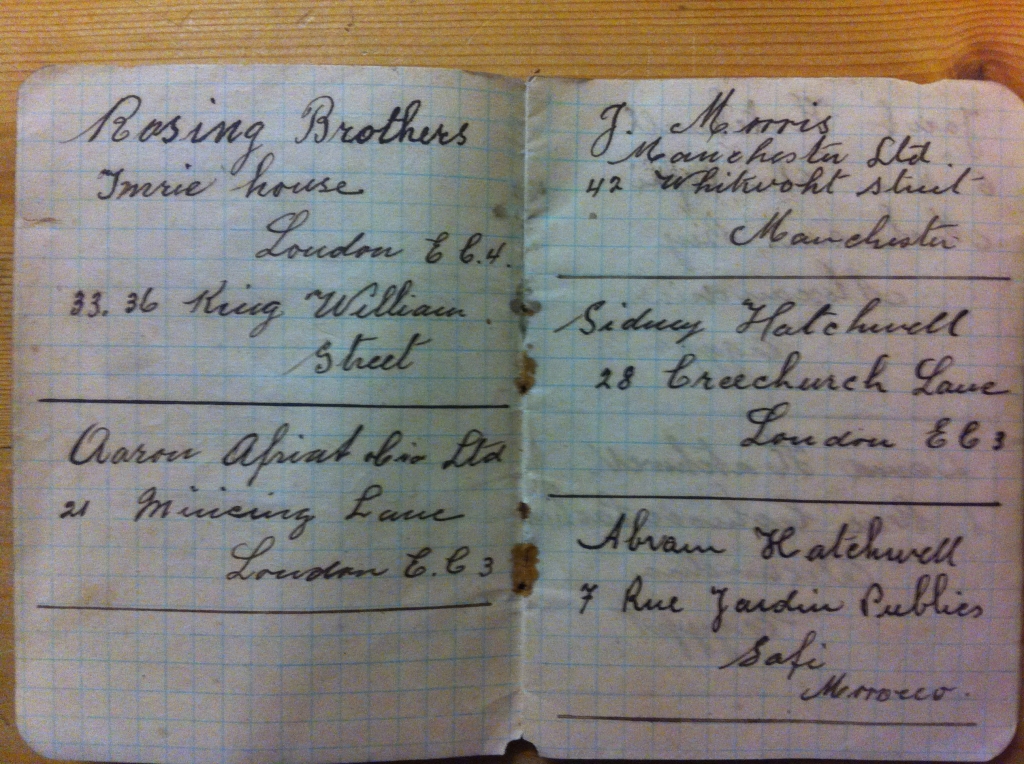 Rosing Brothers
Imrie house
London E C.4.
33. 36 King William
Street
Aaron Afriat & Co Ltd
21 Mincing Lane
London E.C 3
J. Morris
Manchester Ltd.
42 street
Manchester
Sidney Hatchwell
28 Creechurch Lane
London E C 3
Abram Hatchwell
7 Rue Jardin Publics
Safi
Morocco.